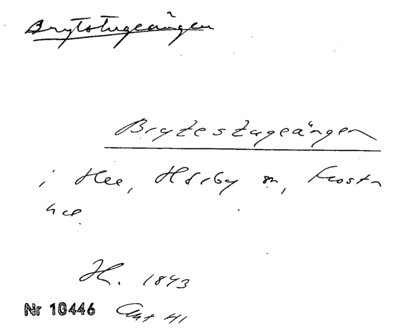 Brytstugeängen
Brytestugeängen
i Hee, Hörby sn, Frosta
hd
H. 1843
Nr 10446 Akt 41